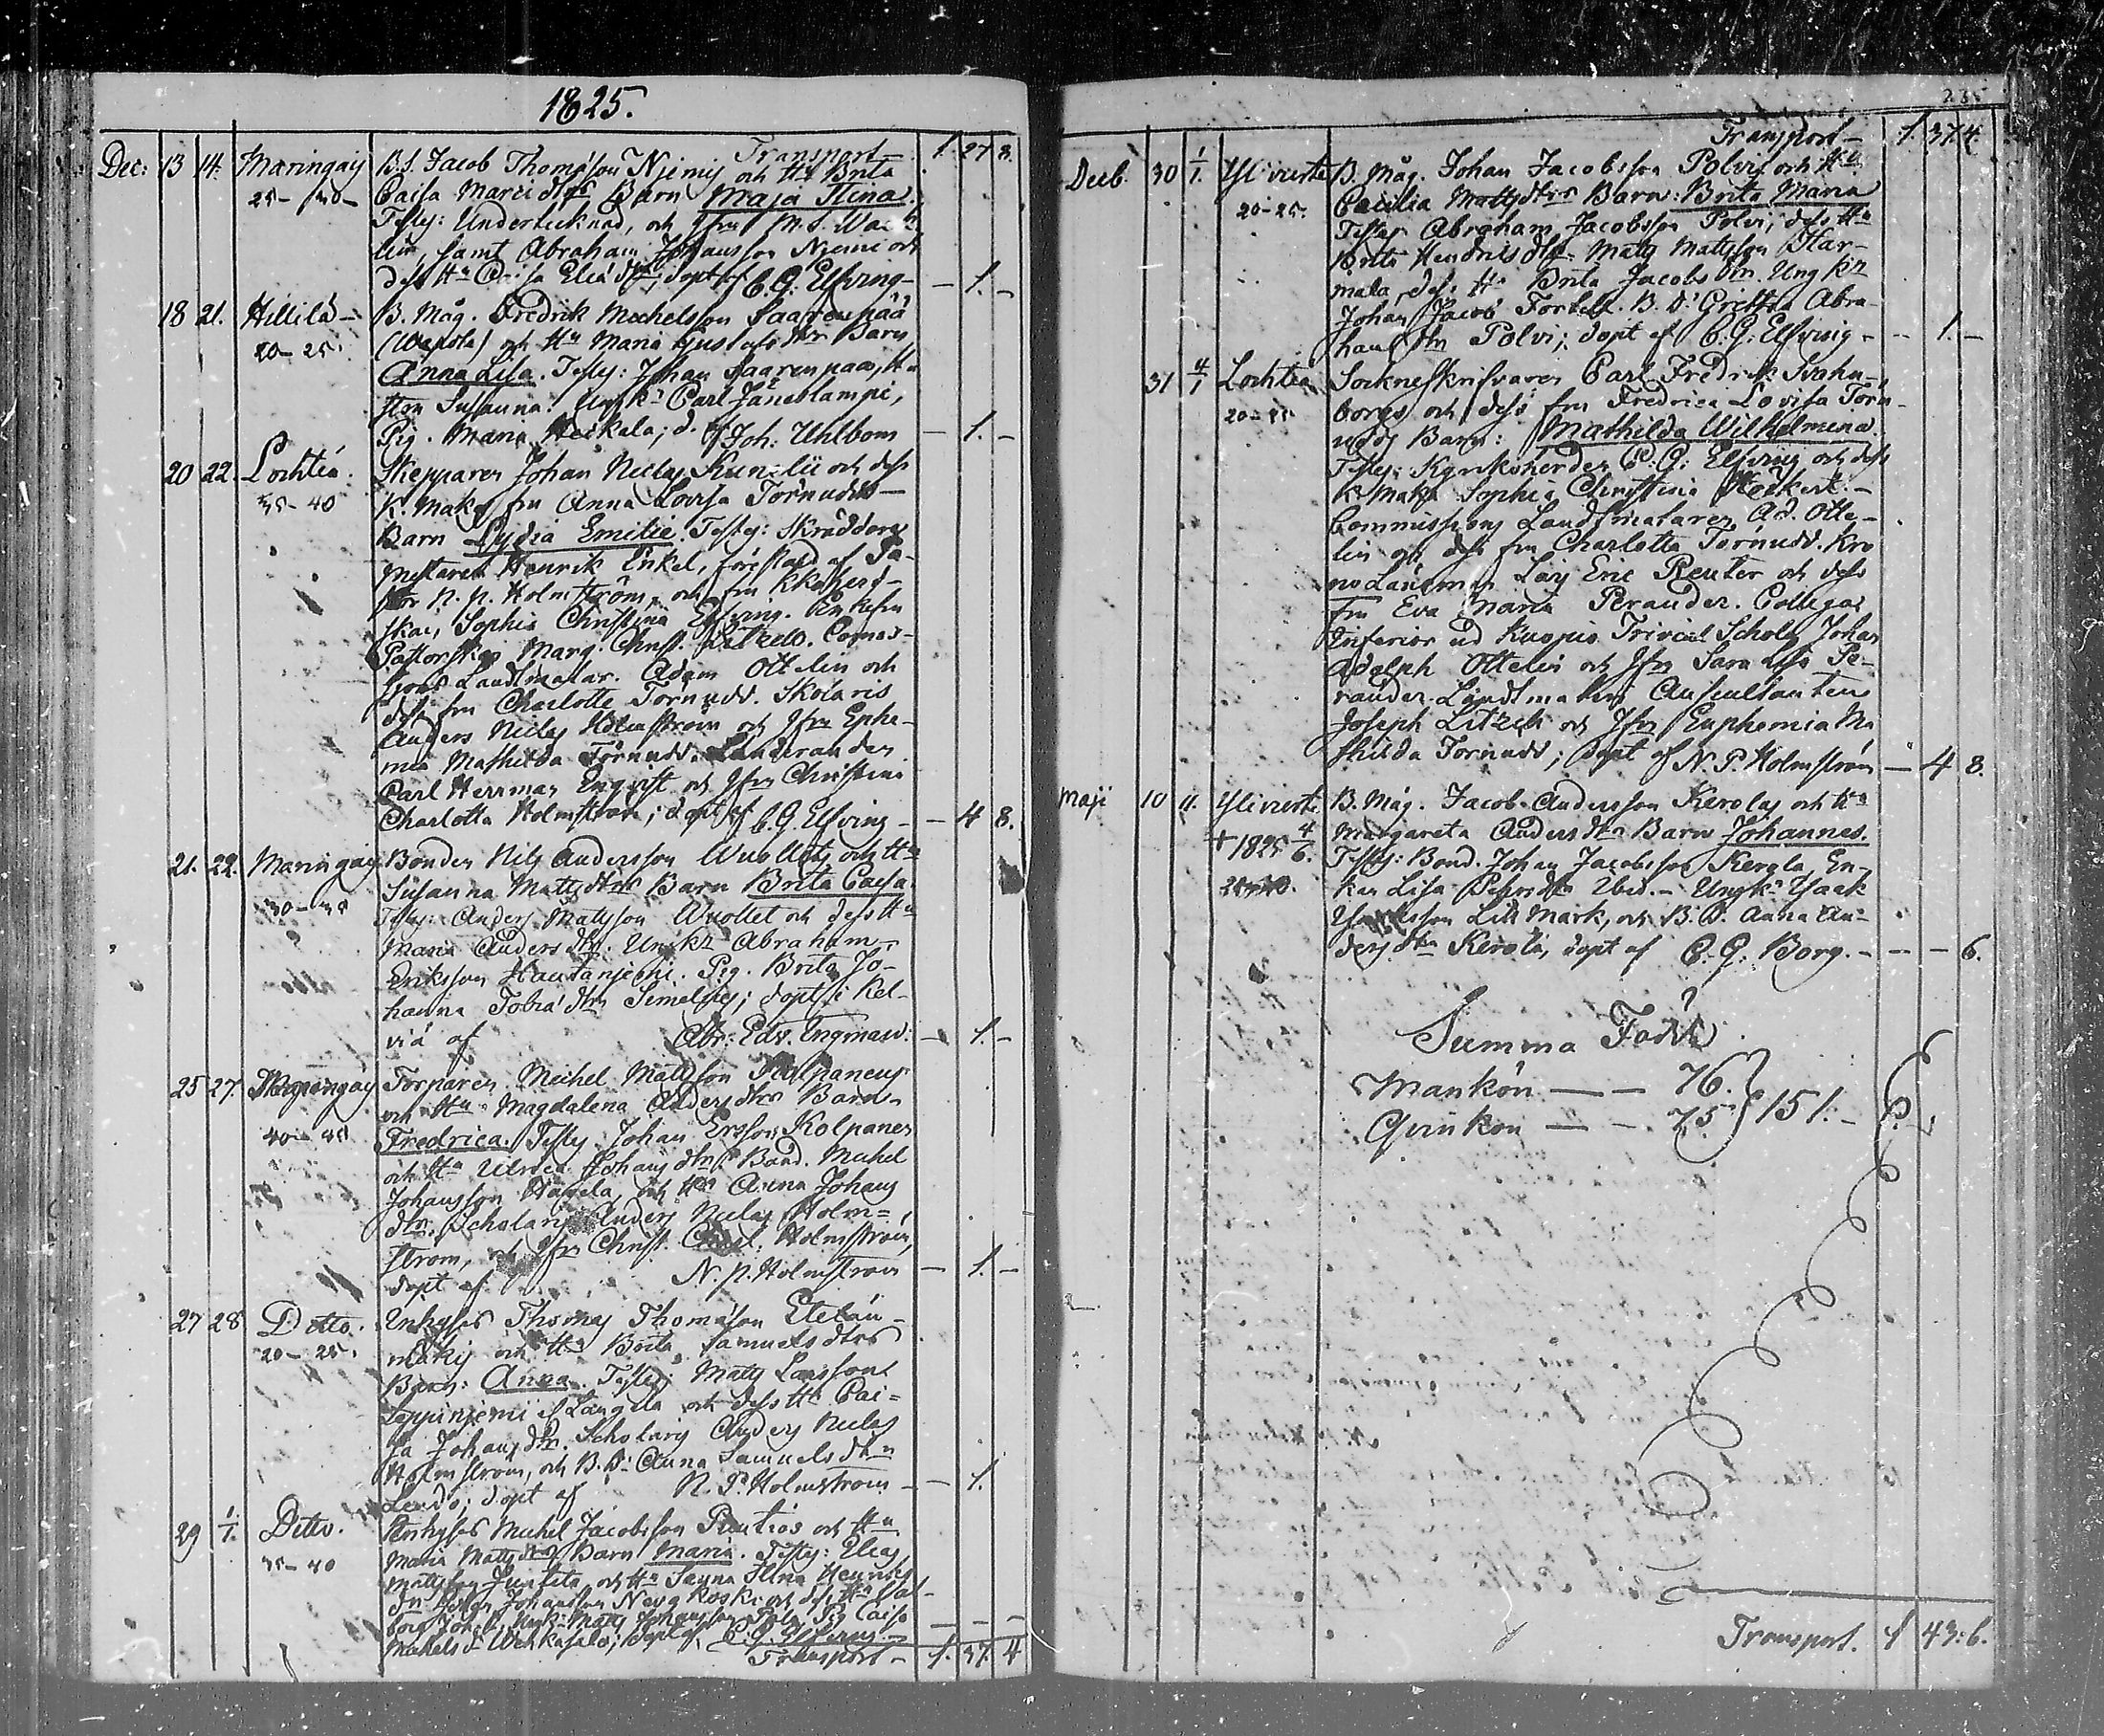 1825.
Transport 1. 27 8.
Dec: 13 14. Maringais B.S. Jacob Thomasson Njemis och Hu Brita
25-30 Caisa Marci dtrs Barn Maja Stina.
Testes: Undertecknad, och Jfru M. S. Wack
lin, samt Abraham Johansson Njemi och
dess Hu Caisa Eliædtr; döpt af C. G. Elfving - 1. -
18 21. Hillilä - B. Måg. Fredrik Michelsson Saarenpää
20-25. och Hu Maria Gustafs dtrs Barn
Anna Lisa. Testes: Johan Saarenpää, Hu
Susanna. Ungk. Carl Jäneslampi,
Pig. Maria Heikala; d. af Joh: Uhlbom - 1. -
20 22. Lochteå. Skepparen Johan Niclas Kunelii och dess
35-40 K. Maka fru Anna Lovisa Törnudds
Barn Lydia Emilie. Testes: Skräddare
mästaren Henrik Enkel, Pa-
stor N. P. Holmström, och fru Kkoherd-
skan, Sophia Christina Elfving. Enkefru
Pastorskan Marg. Christ. Litzell. Comis-
sions Landtmätar. Adam Ottelin och
dess fru Charlotte Törnudd. Skolaris
Anders Niclas Holmström och Jfru Ephe-
mia Mathilda Törnudd. Studeranden
Carl Herrman Engvist och Jfru Christina
Charlotta Holmström; döpt af C. G. Elfving - 4 8.
21. 22. Maringais Bonden Nils Andersson Wuollets och Hu
30-35 Susanna Mattsdtrs Barn Brita Caisa.
Testes: Anders Mattsson Wuollet och dess Hu
Maria Andersdtr. Ungkr Abraham
Eriksson Hautanjemi. Pig. Brita Jo-
hanna Tobiædtr; döpt i Kel-
viå af Abr: Edv. Engman. - 1. -
25 27. Maringais Torparen Michel Mattsson Kolpanens
40-45 och Hu Magdalena Andersdtrs Barn
Fredrica. Testes: Johan Ersson Kolpanen
och Hu Ulrica Johansdtr. Bond. Michel
Johansson Hagela, och Hu Anna Johans
dtr. Scholaris Anders Niclas Holm=
ström, och Jfru Christ. Charl. Holmström,
döpt af N. P. Holmström - 1. -
27 28 Ditto. Inhyses Thomas Thomasson Etelän-
20-25. mäkis och Hu Brita Samuelsdtrs
Barn: Anna. Testes: Matts Larsson
och dess Hu Cai=
sa Johansdtr. Scholaris Anders Niclas
Holmström, och B. D. Anna Samuelsdtr
döpt af N. P. Holmström - 1.
29 1/1. Ditto. Inhyses Michel Jacobsson Puntios och Hu
35-40 Maria Mattsdtrs Barn Maria. Testes: Elias
Mattsson och Hu Stina Henrics
dtr. Johan Johansson Nevakoski och dess Hu Val-
borg Ungk. Matts Johansson Pig. Caisa
Michelsd. döpt af C. G. Elfving - - -
Transport - 1. 37. 4
235
Transport - 1. 37. 4.
Decb. 30 1/1. Ylivierte B. Måg. Johan Jacobsson Polvis och Hu
20-25. Cecilia Mattsdtrs Barn: Brita Maria
Testes Abraham Jacobsson Polvi, dess Hu
Brita Hendrics dtr. Matts Mattsson Har-
mala, dess Hu Brita Jacobsdtr. Ungkr
Johan Jacob Fortell. B. D. Gretha Abra-
hamsdtr Polvi; döpt af C. G. Elfving - - 1. -
31 4/1 Lochteå Sockneskrifvaren Carl Fredrik Svahn-
20-25 borgs och dess fru Fredrica Lovisa Törn-
udds Barn: Mathilda Wilhelmina.
Testes: Kyrkoherden C. G. Elfving och dess
K. Maka Sophia Christina Heckert. -
Commissions Landtmätaren Ad. Otte-
lin och dess fru Charlotta Törnudd. Kro
no Länsman Lars Eric Reuter och dess
fru Eva Maria Perander. Collega
Inferior vid Kuopio Trivial Schola Johan
Adolph Ottelin och Jfru Sara Lisa Pe-
rander. Landtmäteri Auscultanten
Joseph Litzell och Jfru Euphemia Ma
thilda Törnudd; döpt af N. P. Holmström - 4 8.
Maji 10 11. Ylivierte B. Måg. Jacob Andersson Kerolas och Hu
+ 1825 4/6. Margareta Andersdtrs Barn Johannes.
Testes: Bond. Johan Jacobsson Kerola, En-
kan Lisa Pehrsdtr Ibid. - Ungkr Isaak
Lill Mark, och B. D. Anna An-
dersdtr Kerola, döpt af C. G. Borg. - - - 6.
Summa Födde
Mankön - - 76. } 151. -
Qvinkön - - 75 }
Transport. 1 43: 6.